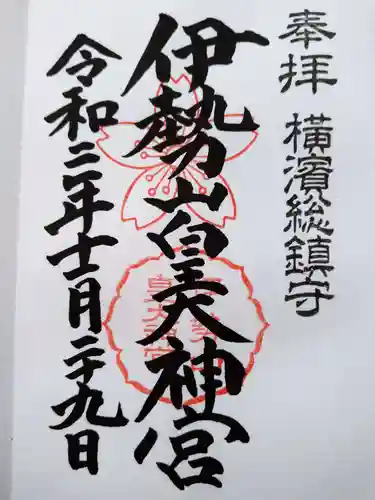 奉拝
横濱総鎮守
伊勢山皇大神宮
令和二年十一月二十九日